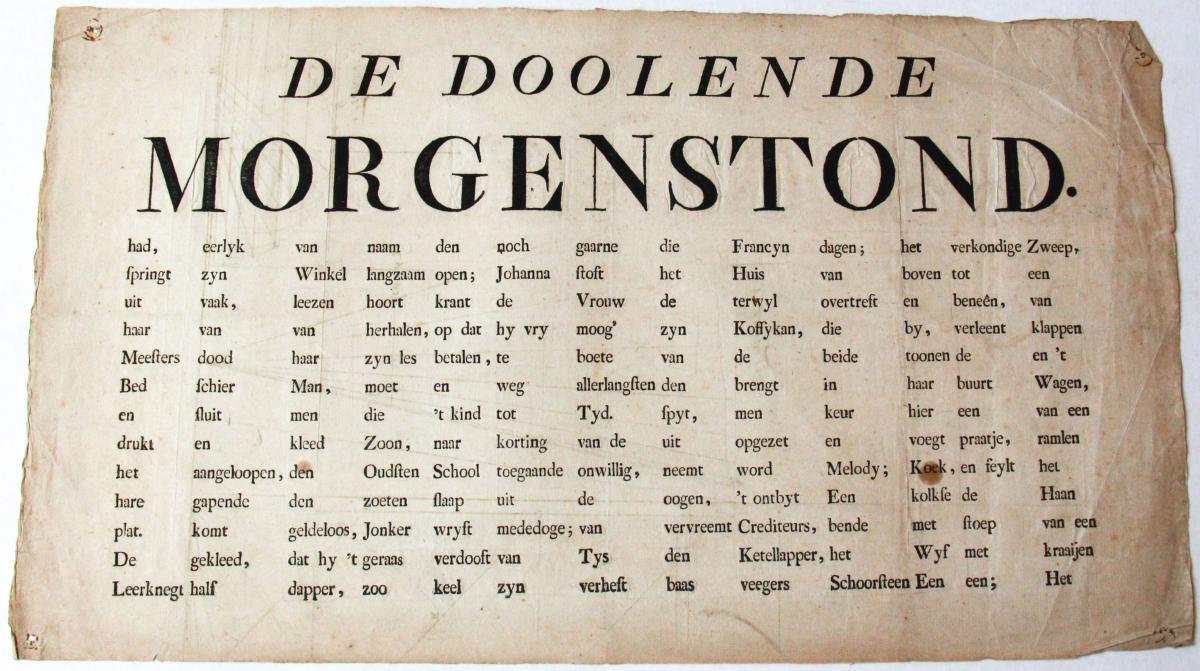 DE DOOLENDE
MORGENSTOND.
had, eerlyk van naam den noch gaarne die Francyn dagen; het verkondige Zweep,
ſpringt zyn Winkel langzaam open; Johanna ſtoft het Huis van boven tot een
uit vaak, leezen hoort krant de Vrouw de terwyl overtreft en beneên, van
haar van van herhalen, op dat hy vry moog' zyn Koffykan, die by, verleent klappen
Meeſters dood haar zyn les betalen, te boete van de beide toonen de en 't
Bed ſchier Man, moet en weg allerlangſten den brengt in haar buurt Wagen,
en ſluit men die 't kind tot Tyd. ſpyt, men keur hier een van een
drukt en kleed Zoon, naar korting van de uit opgezet en voegt praatje, ramlen
het aangeloopen, den Oudſten School toegaande onwillig, neemt word Melody; Koek, en feylt het
hare gapende den zoeten ſlaap uit de oogen, 't ontbyt Een kolkſe de Haan
plat. komt geldeloos, Jonker wryft mededoge; van vervreemt Crediteurs, bende met ſtoep van een
De gekleed, dat hy 't geraas verdooft van Tys den Ketellapper, het Wyf met kraaijen
Leerknegt half dapper, zoo keel zyn verheft baas veegers Schoorſteen Een een; Het